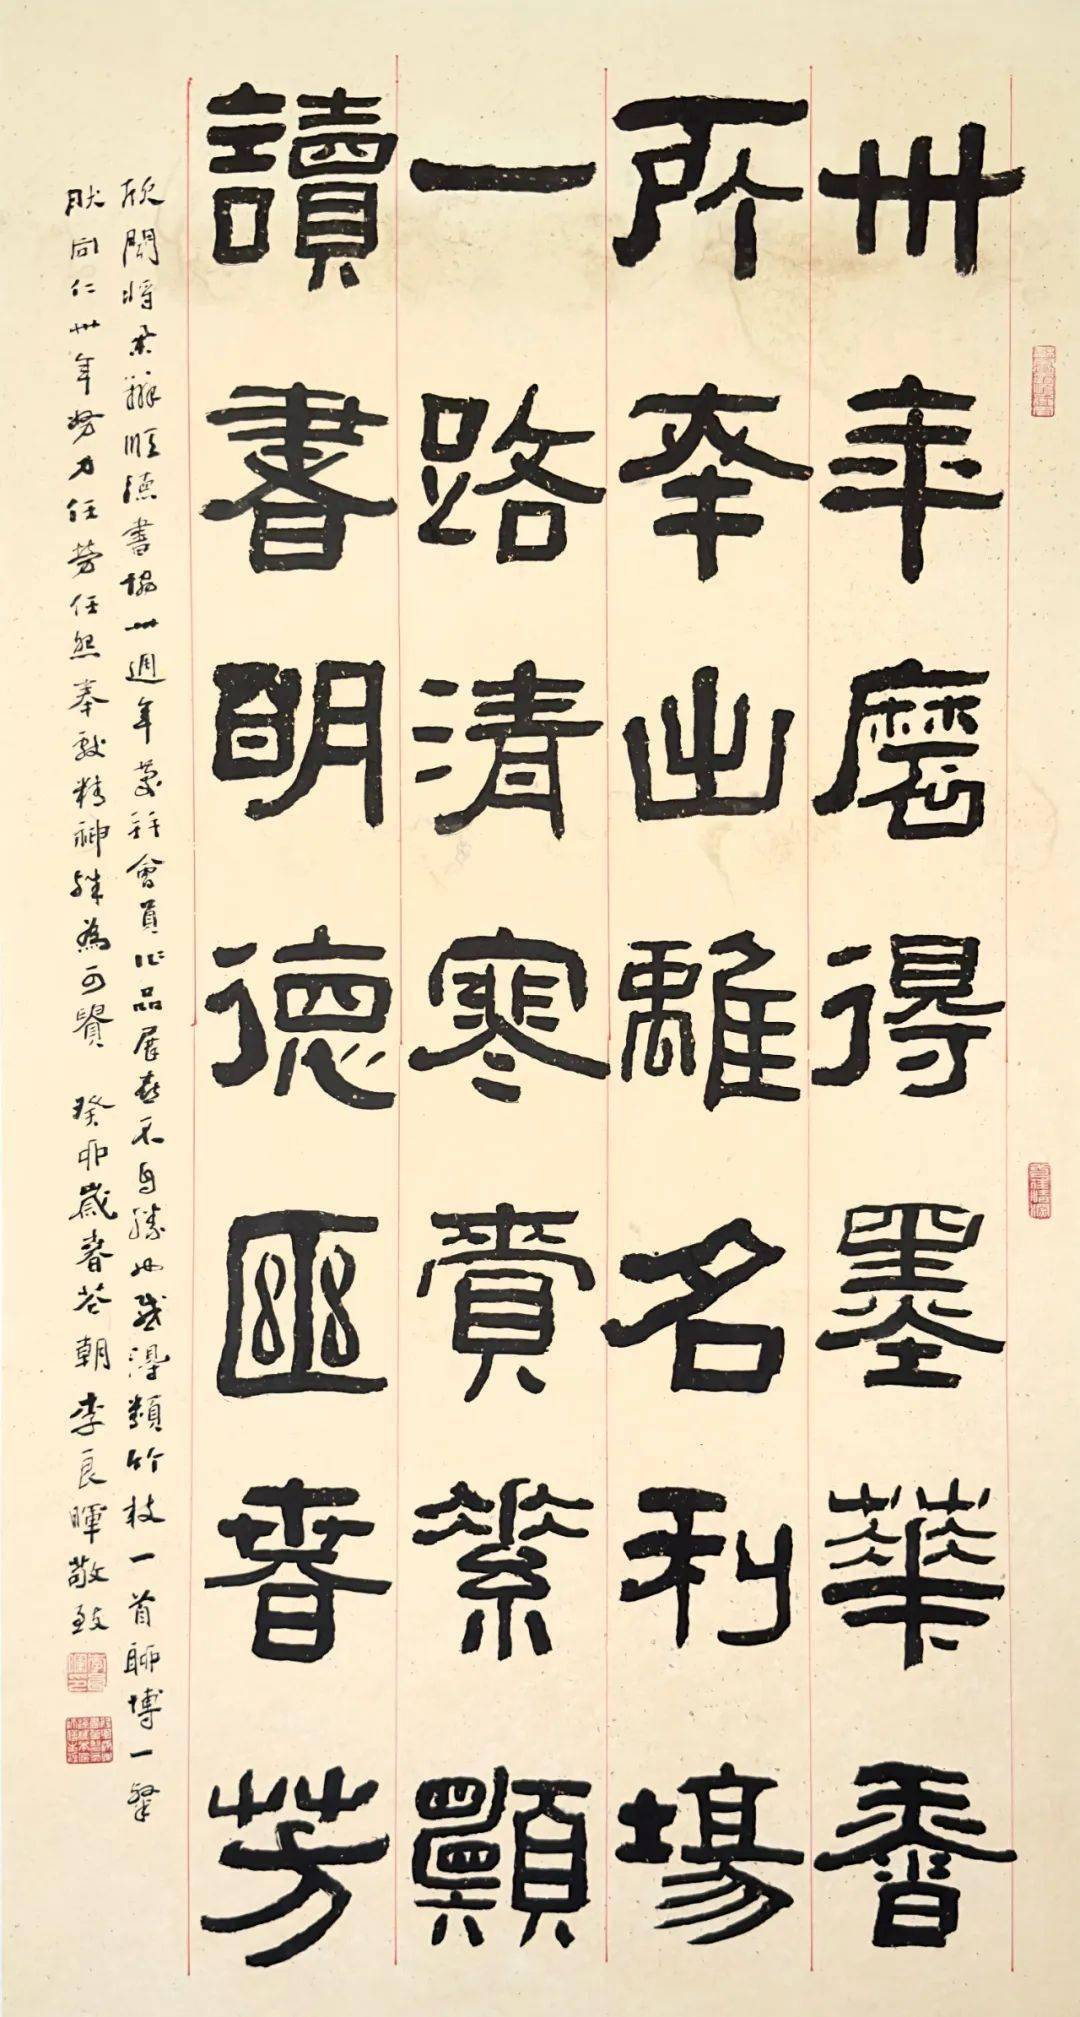 卅年磨得墨華香
所幸出離名利場
一路清寒賚素願
讀書明德春芳
欣聞將舉辦順德書協卅週年慶祝會員作品展喜不自勝也感得類竹枝一首聊博一粲
同仁卅年努力任勞任怨奉獻精神殊為可賢 癸卯歲春花朝李良暉敬致